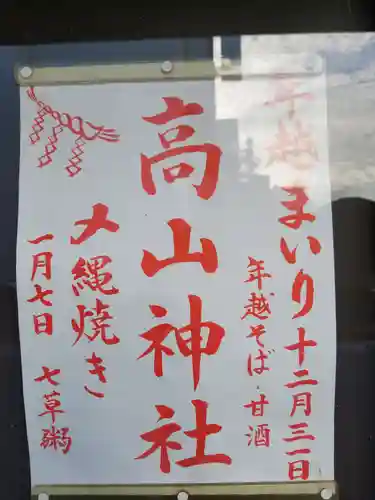 年越まいり十二月三一日
年越そば・甘酒
高山神社
〆縄焼き
一月七日 七草粥